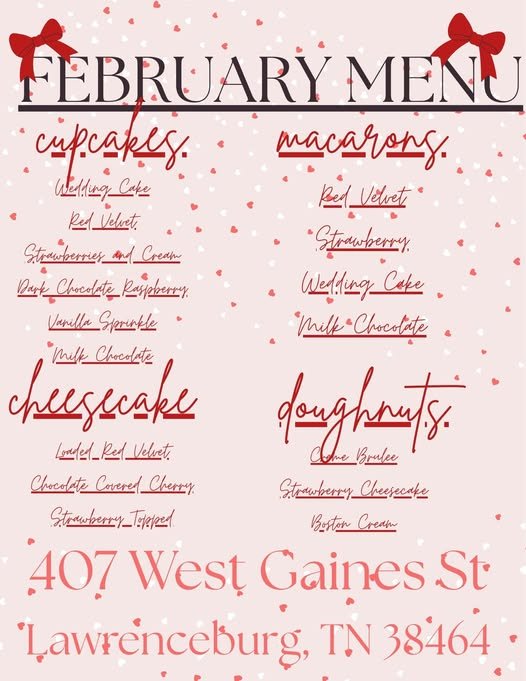 FEBRUARY MENU
cupcakes
Wedding Cake
Red Velvet
Strawberries and Cream
Dark Chocolate Raspberry
Vanilla Sprinkle
Milk Chocolate
macarons
Red Velvet
Strawberry
Wedding Cake
Milk Chocolate
cheesecake
Loaded Red Velvet
Chocolate Covered Cherry
Strawberry Topped
doughnuts
Creme Brulee
Strawberry Cheesecake
Boston Cream
407 West Gaines St
Lawrenceburg, TN 38464